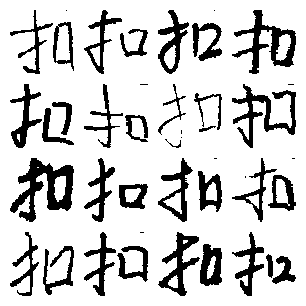 扣扣扣扣
扣扣扣扣
扣扣扣扣
扣扣扣扣